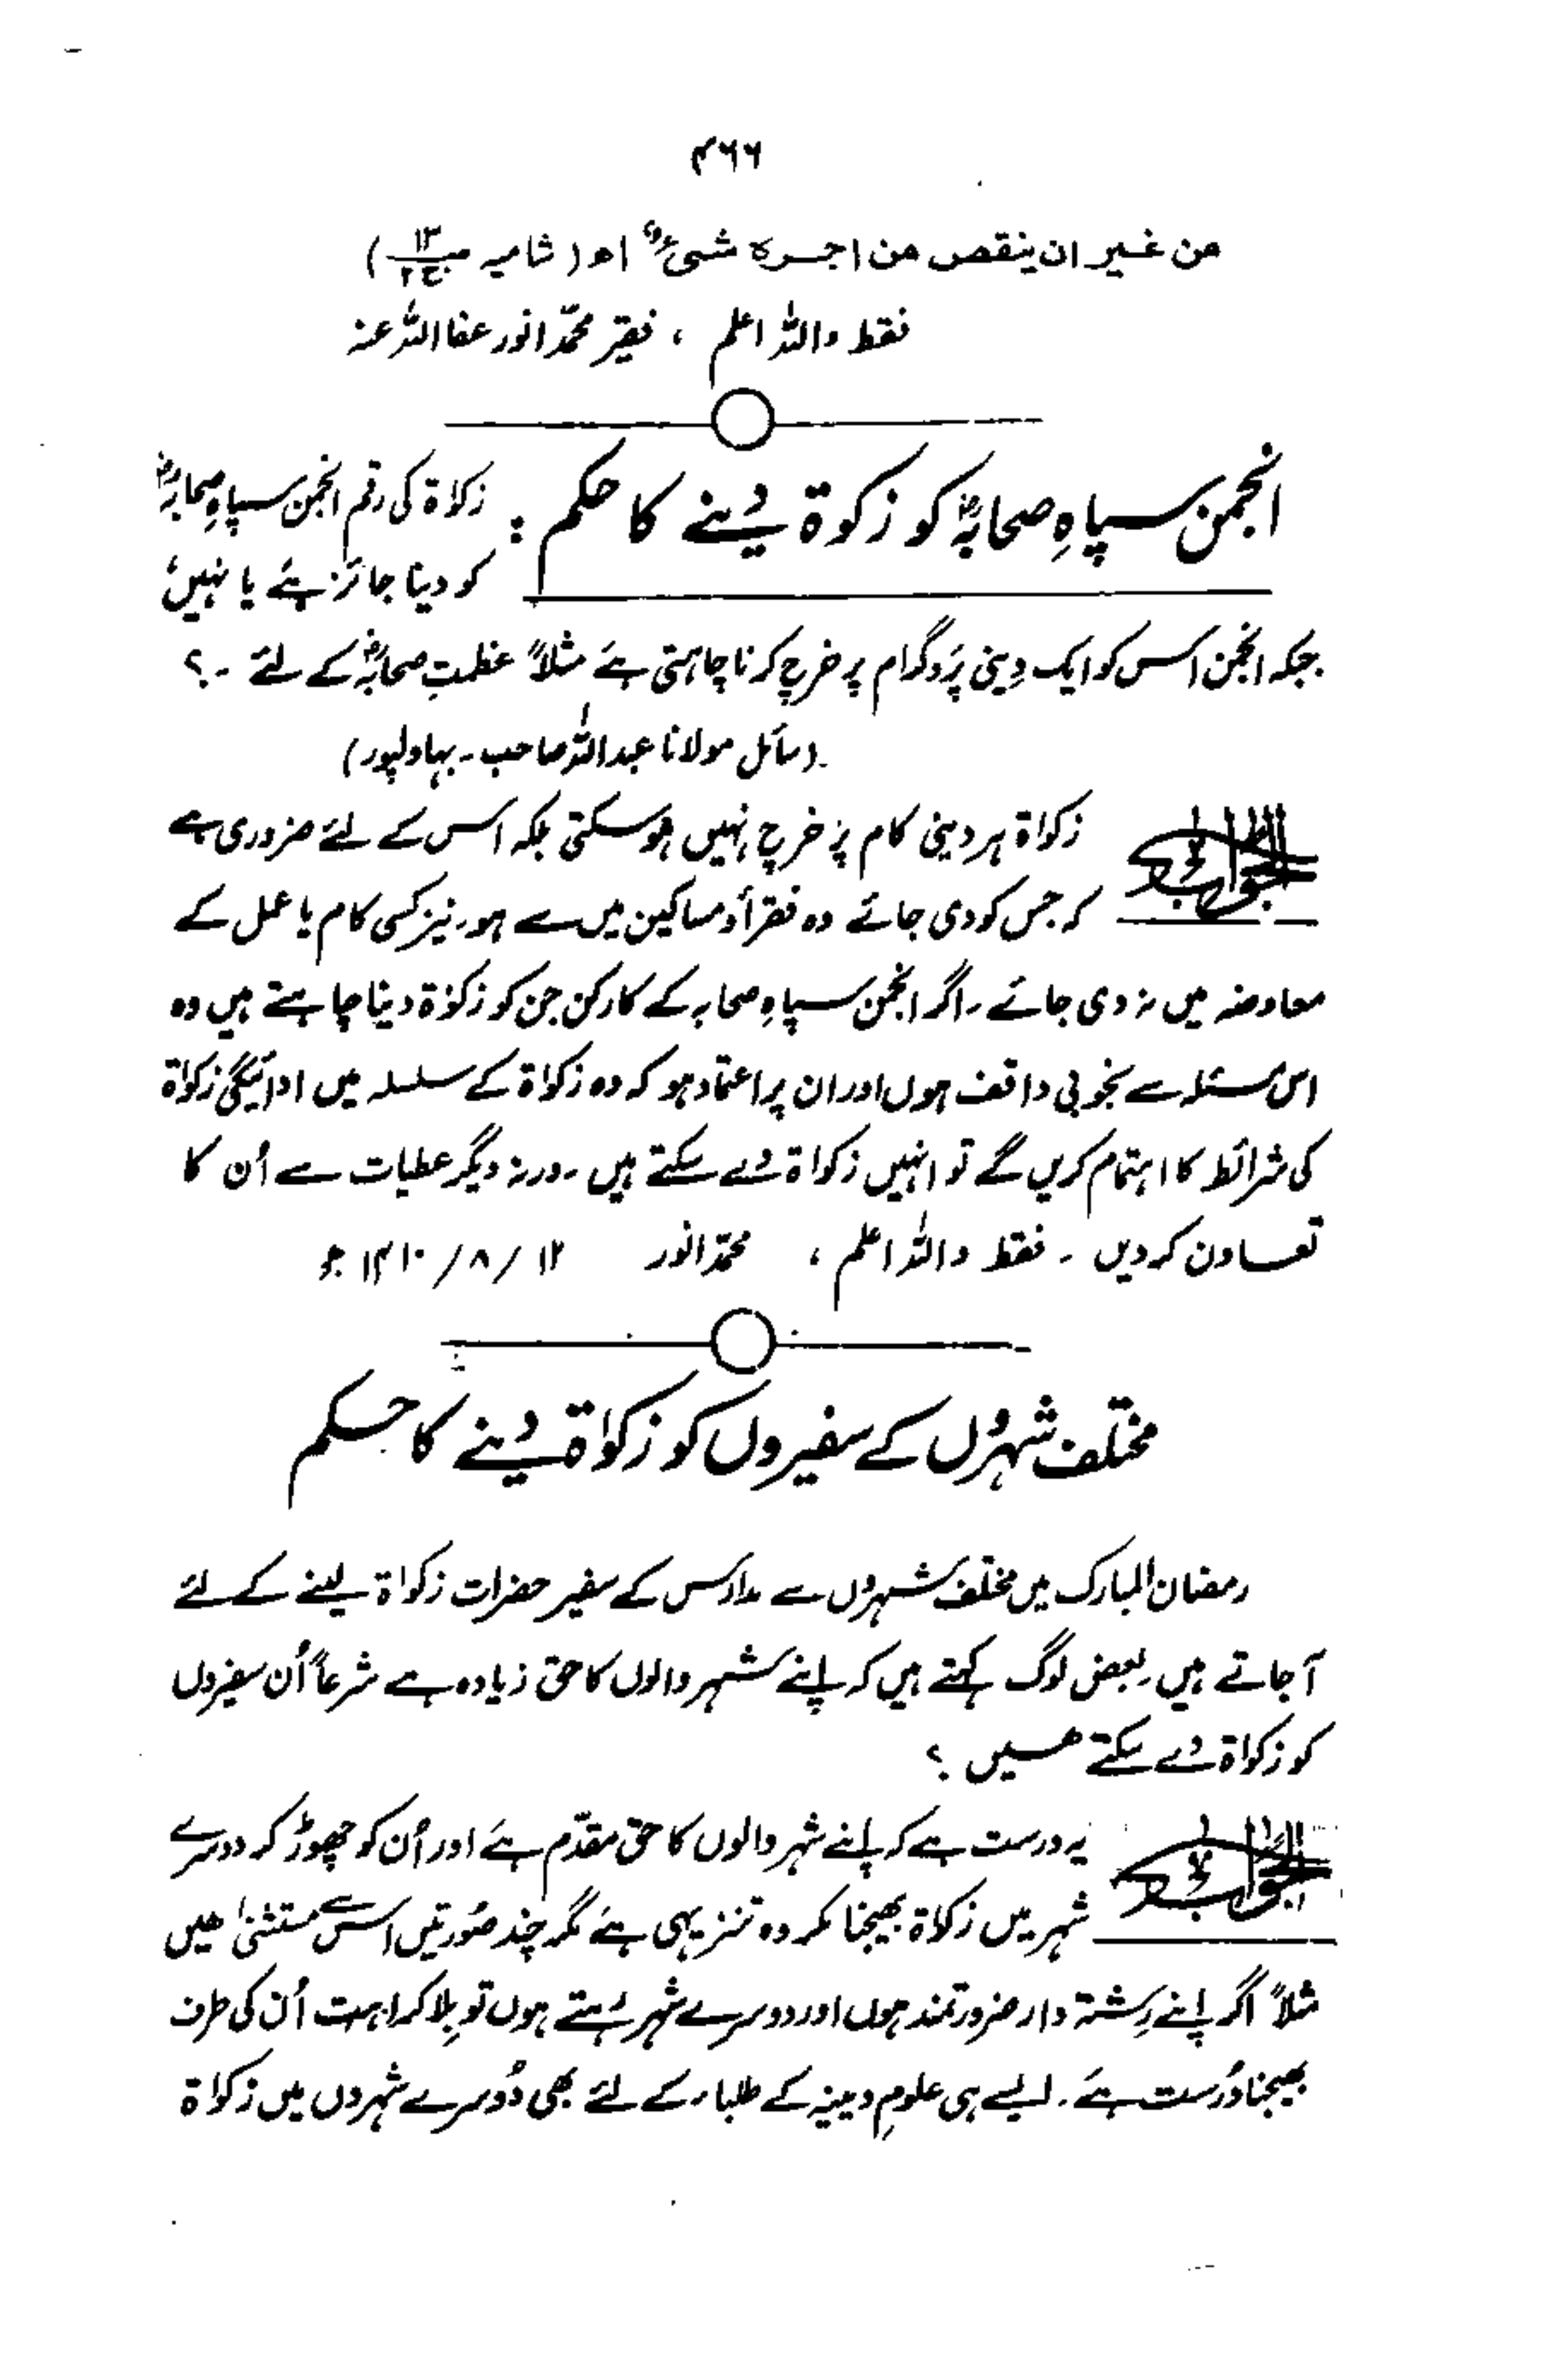 ۴۶۶
من غیر ان ینقص من اجرہ شیءٌ اھ (شامیہ ص۱۳ ج۲)
فقط واللہ اعلم ، فقیر محمد انور عفا اللہ عنہ
انجمن سپاہِ صحابہؓ کو زکوٰۃ دینے کا حکم : زکوٰۃ کی رقم انجمن سپاہِ صحابہؓ
کو دینا جائز ہے یا نہیں؛
جبکہ انجمن اس کو ایک دِینی پروگرام پر خرچ کرنا چاہتی ہے مثلاً عظمتِ صحابہؓ کے لئے ۔ ؟
(سائل مولانا عبداللہ صاحب۔ بہاولپور)
الجواب زکواۃ ہر دینی کام پر خرچ نہیں ہو سکتی بلکہ اس کے لئے ضروری ہے
کہ جس کو دی جائے وہ فقرأ و مساکین میں سے ہو۔ نیز کسی کام یا عمل کے
معاوضہ میں نہ دی جائے ۔ اگر انجمن سپاہِ صحابہ کے کارکن جن کو زکوٰۃ دینا چاہتے ہیں وہ
اس مسئلہ سے بخوبی واقف ہوں اور ان پر اعتماد ہو کہ وہ زکواۃ کے سلسلہ میں ادائیگیٔ زکواۃ
کی شرائط کا اہتمام کریں گے تو انہیں زکواۃ دے سکتے ہیں ۔ ورنہ دیگر عطیات سے اُن کا
تعاون کر دیں ۔ فقط واللہ اعلم ، محمد انور ۱۲ / ۸ / ۱۴۱۰ھ
مختلف شہروں کے سفیروں کو زکواۃ دینے کا حکم
رمضان المبارک میں مختلف شہروں سے مدارس کے سفیر حضرات زکواۃ لینے کے لئے
آجاتے ہیں ۔ بعض لوگ کہتے ہیں کہ اپنے شہر والوں کا حق زیادہ ہے شرعاً اُن سفیروں
کو زکواۃ دے سکتے ھیں ؟
الجواب یہ درست ہے کہ اپنے شہر والوں کا حق مقدّم ہے اور اُن کو چھوڑ کر دوسرے
شہر میں زکواۃ بھیجنا مکروہ تنزیہی ہے مگر چند صُورتیں اس سے مستثنیٰ ھیں
مثلاً اگر اپنے رِشتہ دار ضرورتمند ہوں اور دوسرے شہر رہتے ہوں تو بِلا کراہت اُن کی طرف
بھیجنا دُرست ہے ۔ ایسے ہی علومِ دینیہ کے طلباء کے لئے بھی دُوسرے شہروں میں زکواۃ